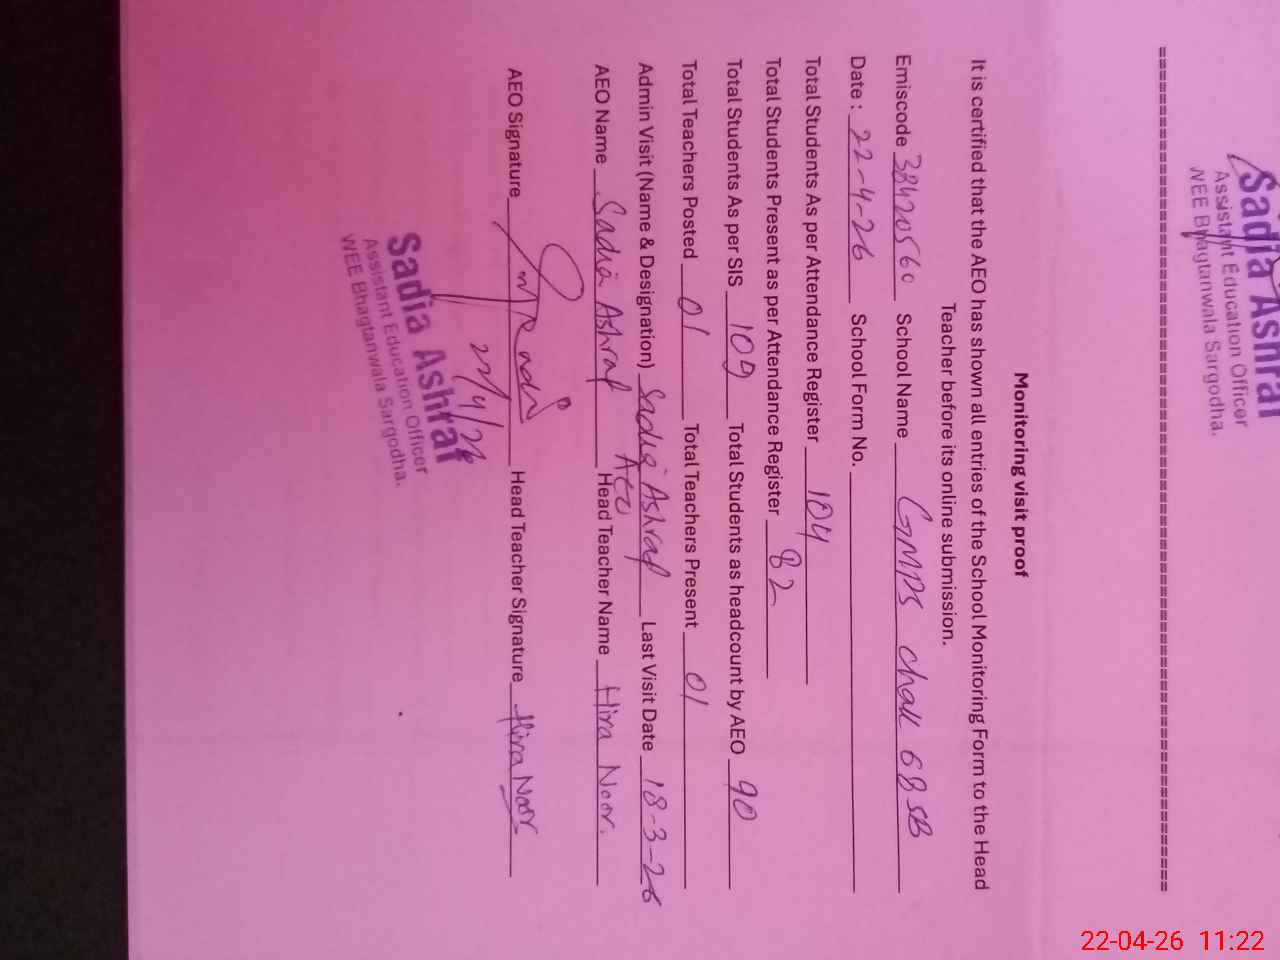 Sadia Ashraf
Assistant Education Officer
WEE Bhagtanwala Sargodha.
================================================
Monitoring visit proof
It is certified that the AEO has shown all entries of the School Monitoring Form to the Head
Teacher before its online submission.
Emiscode 38420560 School Name GMPS chak 68 SB
Date : 22-4-26 School Form No.
Total Students As per Attendance Register 104
Total Students Present as per Attendance Register 82
Total Students As per SIS 109 Total Students as headcount by AEO 90
Total Teachers Posted 01 Total Teachers Present 01
Admin Visit (Name & Designation) Sadia Ashraf Last Visit Date 18-3-26
AEO
AEO Name Sadia Ashraf Head Teacher Name Hira Noor.
AEO Signature Head Teacher Signature Hira Noor
22/4/26
Sadia Ashraf
Assistant Education Officer
WEE Bhagtanwala Sargodha.
22-04-26 11:22